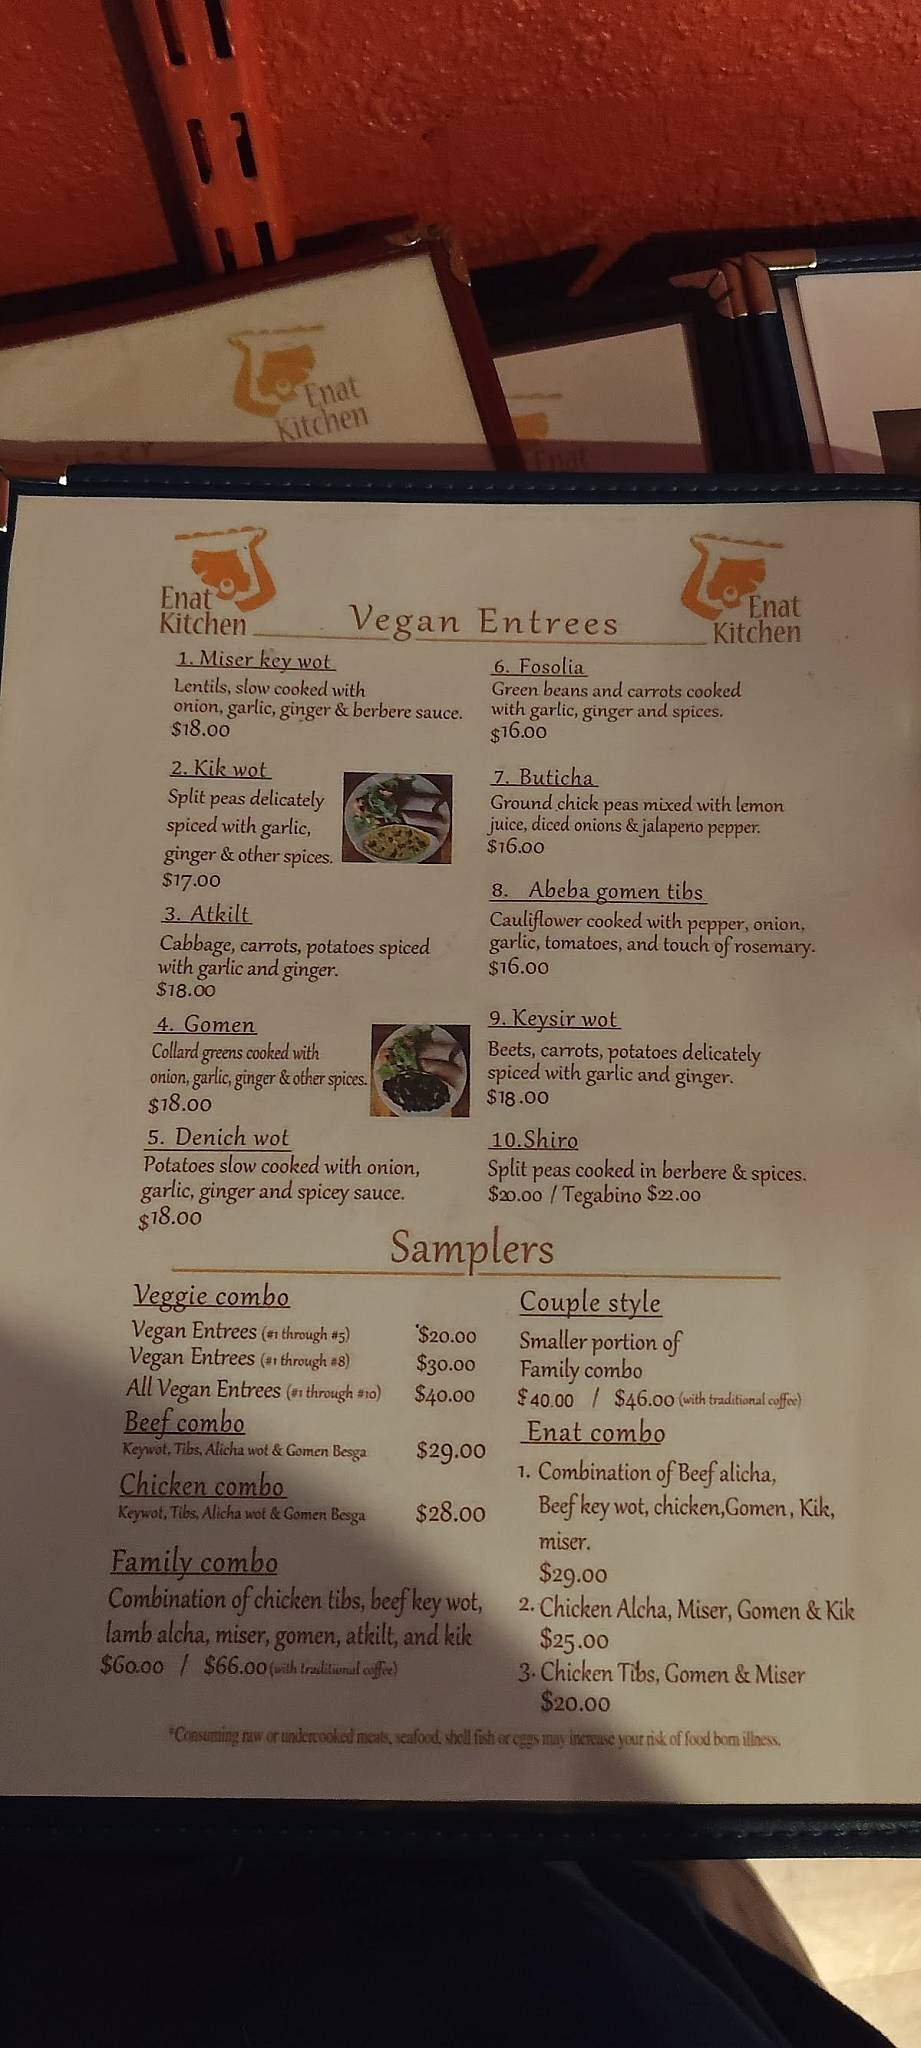 Enat
Kitchen
Enat
Enat
Kitchen
Vegan Entrees
Enat
Kitchen
1. Miser key wot
Lentils, slow cooked with
onion, garlic, ginger & berbere sauce.
$18.00
2. Kik wot
Split peas delicately
spiced with garlic,
ginger & other spices.
$17.00
3. Atkilt
Cabbage, carrots, potatoes spiced
with garlic and ginger.
$18.00
4. Gomen
Collard greens cooked with
onion, garlic, ginger & other spices.
$18.00
5. Denich wot
Potatoes slow cooked with onion,
garlic, ginger and spicey sauce.
$18.00
6. Fosolia
Green beans and carrots cooked
with garlic, ginger and spices.
$16.00
7. Buticha
Ground chick peas mixed with lemon
juice, diced onions & jalapeno pepper.
$16.00
8. Abeba gomen tibs
Cauliflower cooked with pepper, onion,
garlic, tomatoes, and touch of rosemary.
$16.00
9. Keysir wot
Beets, carrots, potatoes delicately
spiced with garlic and ginger.
$18.00
10.Shiro
Split peas cooked in berbere & spices.
$20.00 / Tegabino $22.00
Samplers
Veggie combo
Vegan Entrees (#1 through #5) $20.00
Vegan Entrees (#1 through #8) $30.00
All Vegan Entrees (#1 through #10) $40.00
Beef combo
Keywot, Tibs, Alicha wot & Gomen Besga $29.00
Chicken combo
Keywot, Tibs, Alicha wot & Gomen Besga $28.00
Family combo
Combination of chicken tibs, beef key wot,
lamb alcha, miser, gomen, atkilt, and kik
$60.00 / $66.00 (with traditional coffee)
Couple style
Smaller portion of
Family combo
$40.00 / $46.00 (with traditional coffee)
Enat combo
1. Combination of Beef alicha,
Beef key wot, chicken,Gomen, Kik,
miser.
$29.00
2. Chicken Alcha, Miser, Gomen & Kik
$25.00
3. Chicken Tibs, Gomen & Miser
$20.00
*Consuming raw or undercooked meats, seafood, shell fish or eggs may increase your risk of food born illness.